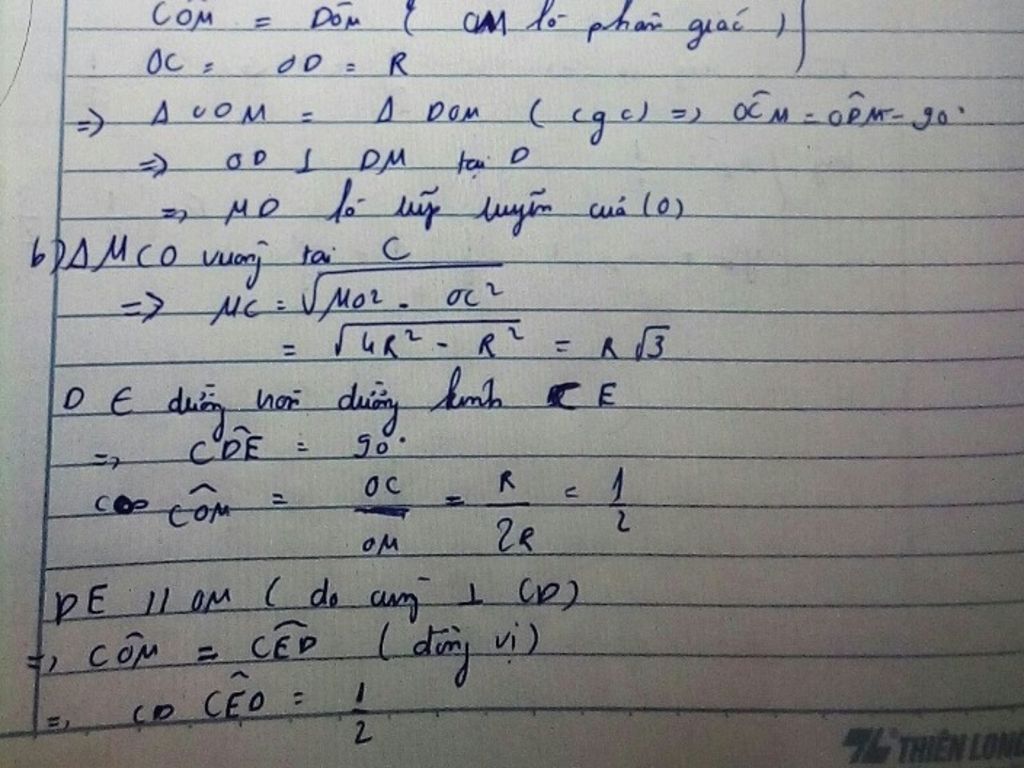 CÔM = DÔM ( OM là phân giác )
OC = OD = R
=> Δ COM = Δ DOM ( cgc) => OĈM = OD̂M = 90°
=> OD ⊥ DM tại D
=> MD là tiếp tuyến của (O)
b) ΔMCO vuông tại C
=> MC = √(MO² - OC²)
= √(4R² - R²) = R√3
D ∈ đường tròn đường kính CE
=> CD̂E = 90°
cos CÔM = OC/OM = R/2R = 1/2
DE // OM ( do cùng ⊥ CD)
=> CÔM = CÊD ( đồng vị )
=> CÊD = 1/2
THIÊN LONG